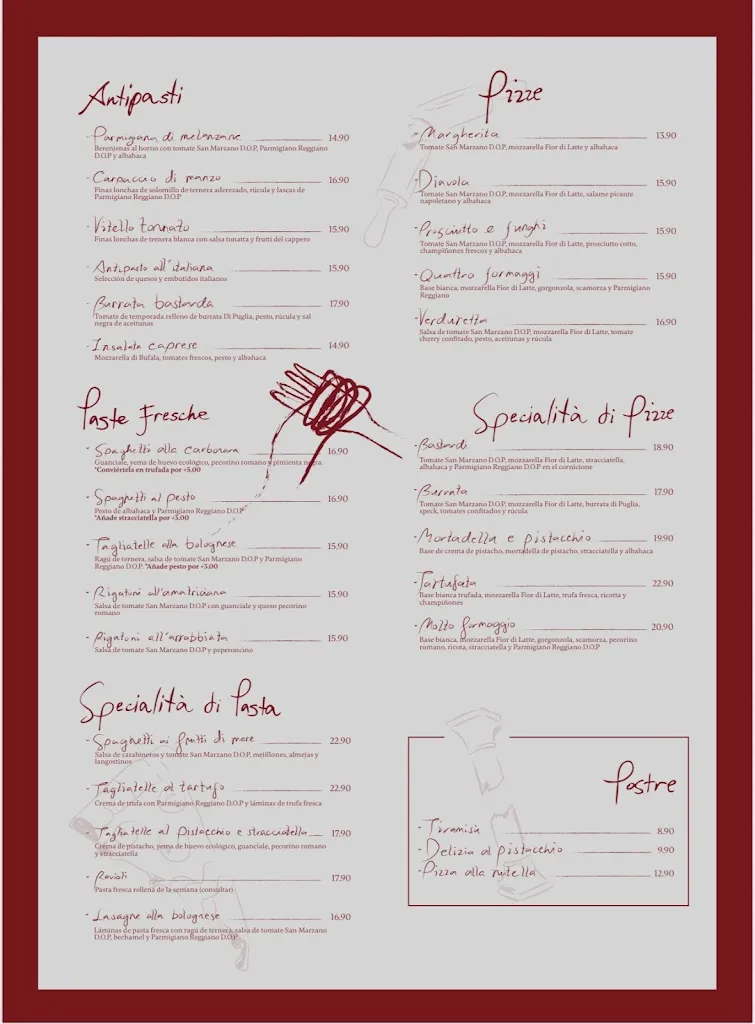 Antipasti
- Parmigiana di melanzane 14.90
Berenjenas al horno con tomate San Marzano D.O.P, Parmigiano Reggiano
D.O.P y albahaca
- Carpaccio di manzo 16.90
Finas lonchas de solomillo de ternera aderezado, rúcula y lascas de
Parmigiano Reggiano D.O.P
- Vitello tonnato 15.90
Finas lonchas de ternera blanca con salsa tonatta y frutti del cappero
- Antipasto all'italiana 15.90
Selección de quesos y embutidos italianos
- Burrata bastarda 17.90
Tomate de temporada relleno de burrata Di Puglia, pesto, rúcula y sal
negra de aceitunas
- Insalata caprese 14.90
Mozzarella di Bufala, tomates frescos, pesto y albahaca
Paste Fresche
- Spaghetti alla carbonara 16.90
Guanciale, yema de huevo ecológico, pecorino romano y pimienta negra.
*Conviértela en trufada por +5.00
- Spaghetti al pesto 16.90
Pesto de albahaca y Parmigiano Reggiano D.O.P
*Añade stracciatella por +3.00
- Tagliatelle alla bolognese 15.90
Ragú de ternera, salsa de tomate San Marzano D.O.P y Parmigiano
Reggiano D.O.P. *Añade pesto por +3.00
- Rigatoni all'amatriciana 15.90
Salsa de tomate San Marzano D.O.P con guanciale y queso pecorino
romano
- Rigatoni all'arrabbiata 15.90
Salsa de tomate San Marzano D.O.P y peperoncino
Specialità di Pasta
- Spaghetti ai frutti di mare 22.90
Salsa de carabineros y tomate San Marzano D.O.P, mejillones, almejas y
langostinos
- Tagliatelle al tartufo 22.90
Crema de trufa con Parmigiano Reggiano D.O.P y láminas de trufa fresca
- Tagliatelle al Pistacchio e stracciatella 17.90
Crema de pistacho, yema de huevo ecológico, guanciale, pecorino romano
y stracciatella
- Ravioli 17.90
Pasta fresca rellena de la semana (consultar)
- Lasagne alla bolognese 16.90
Láminas de pasta fresca con ragú de ternera, salsa de tomate San Marzano
D.O.P, bechamel y Parmigiano Reggiano D.O.P
Pizze
- Margherita 13.90
Tomate San Marzano D.O.P, mozzarella Fior di Latte y albahaca
- Diavola 15.90
Tomate San Marzano D.O.P, mozzarella Fior di Latte, salame picante
napoletano y albahaca
- Prosciutto e funghi 15.90
Tomate San Marzano D.O.P, mozzarella Fior di Latte, prosciutto cotto,
champiñones frescos y albahaca
- Quattro formaggi 15.90
Base bianca, mozzarella Fior di Latte, gorgonzola, scamorza y Parmigiano
Reggiano
- Verduretta 16.90
Salsa de tomate San Marzano D.O.P, mozzarella Fior di Latte, tomate
cherry confitado, pesto, aceitunas y rúcula
Specialità di Pizze
- Bastardi 18.90
Tomate San Marzano D.O.P, mozzarella Fior di Latte, stracciatella,
albahaca y Parmigiano Reggiano D.O.P en el cornicione
- Burrata 17.90
Tomate San Marzano D.O.P, mozzarella Fior di Latte, burrata di Puglia,
speck, tomates confitados y rúcula
- Mortadella e pistacchio 19.90
Base de crema de pistacho, mortadella de pistacho, stracciatella y albahaca
- Tartufata 22.90
Base bianca trufada, mozzarella Fior di Latte, trufa fresca, ricotta y
champiñones
- Molto formaggio 20.90
Base bianca, mozzarella Fior di Latte, gorgonzola, scamorza, pecorino
romano, ricota, stracciatella y Parmigiano Reggiano D.O.P
Postre
- Tiramisù 8.90
- Delizia al pistacchio 9.90
- Pizza alla nutella 12.90